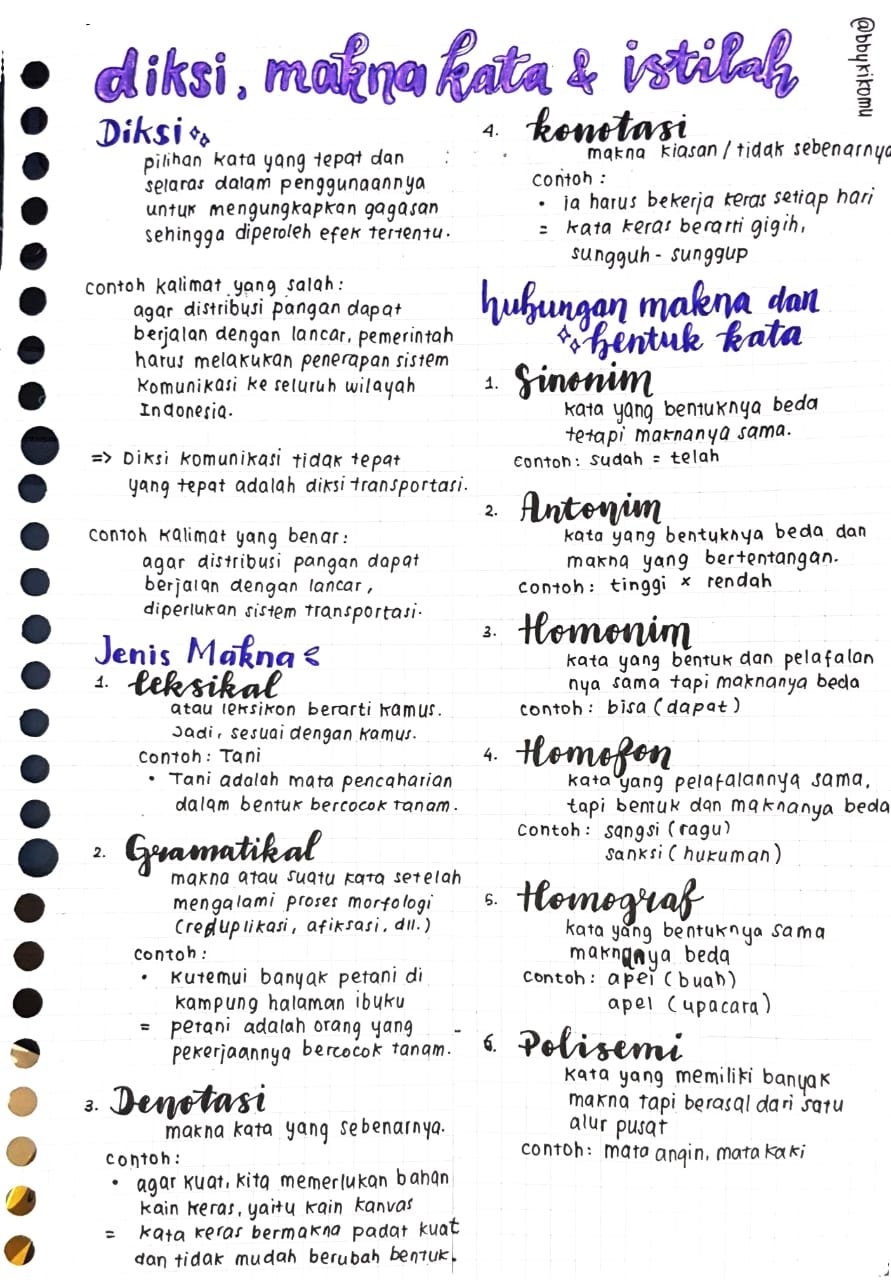 diksi, makna kata & istilah
@bbykikomu
Diksi
pilihan kata yang tepat dan
selaras dalam penggunaannya
untuk mengungkapkan gagasan
sehingga diperoleh efek tertentu.
contoh kalimat yang salah:
agar distribusi pangan dapat
berjalan dengan lancar, pemerintah
harus melakukan penerapan sistem
komunikasi ke seluruh wilayah
Indonesia.
=> Diksi komunikasi tidak tepat
yang tepat adalah diksi transportasi.
contoh kalimat yang benar:
agar distribusi pangan dapat
berjalan dengan lancar,
diperlukan sistem transportasi.
Jenis Makna
1. leksikal
atau leksikon berarti kamus.
Jadi, sesuai dengan kamus.
contoh: Tani
• Tani adalah mata pencaharian
dalam bentuk bercocok tanam.
2. Gramatikal
makna atau suatu kata setelah
mengalami proses morfologi
(reduplikasi, afiksasi, dll.)
contoh:
• kutemui banyak petani di
kampung halaman ibuku
= petani adalah orang yang
pekerjaannya bercocok tanam.
3. Denotasi
makna kata yang sebenarnya.
contoh:
• agar kuat, kita memerlukan bahan
kain keras, yaitu kain kanvas
= kata keras bermakna padat kuat
dan tidak mudah berubah bentuk.
4. konotasi
makna kiasan / tidak sebenarnya
contoh:
• ia harus bekerja keras setiap hari
= kata keras berarti gigih,
sungguh - sunggup
hubungan makna dan
bentuk kata
1. Sinonim
kata yang bentuknya beda
tetapi maknanya sama.
contoh: sudah = telah
2. Antonim
kata yang bentuknya beda dan
makna yang bertentangan.
contoh: tinggi × rendah
3. Homonim
kata yang bentuk dan pelafalan
nya sama tapi maknanya beda
contoh: bisa (dapat)
4. Homofon
kata yang pelafalannya sama,
tapi bentuk dan maknanya beda
contoh: sangsi (ragu)
sanksi (hukuman)
5. Homograf
kata yang bentuknya sama
maknanya beda
contoh: apel (buah)
apel (upacara)
6. Polisemi
kata yang memiliki banyak
makna tapi berasal dari satu
alur pusat
contoh: mata angin, mata kaki